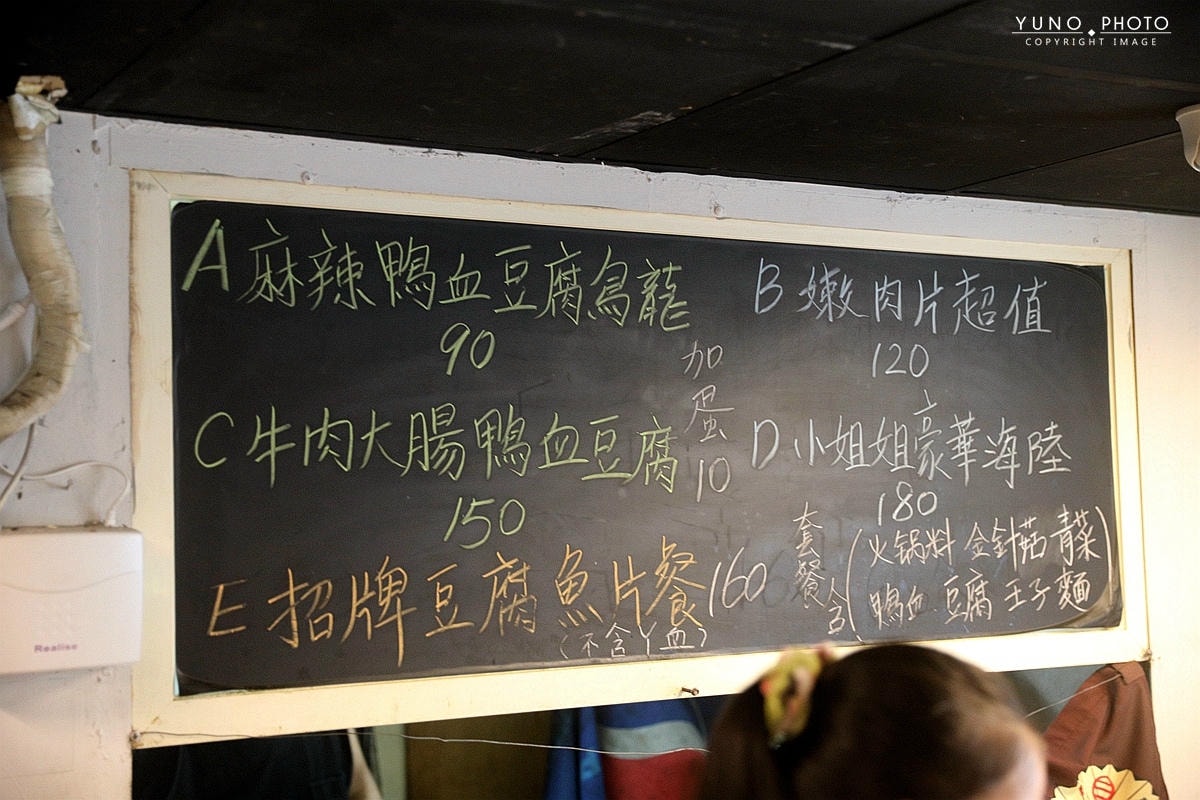 YUNO PHOTO
COPYRIGHT IMAGE
A 麻辣鴨血豆腐烏龍
90
B 嫩肉片超值
120
加蛋10
C 牛肉大腸鴨血豆腐
150
D 小姐姐豪華海陸
180
E 招牌豆腐魚片餐160
(不含丫血)
套餐含
(火锅料 金針菇 青菜)
鴨血 豆腐 王子麵
Realise